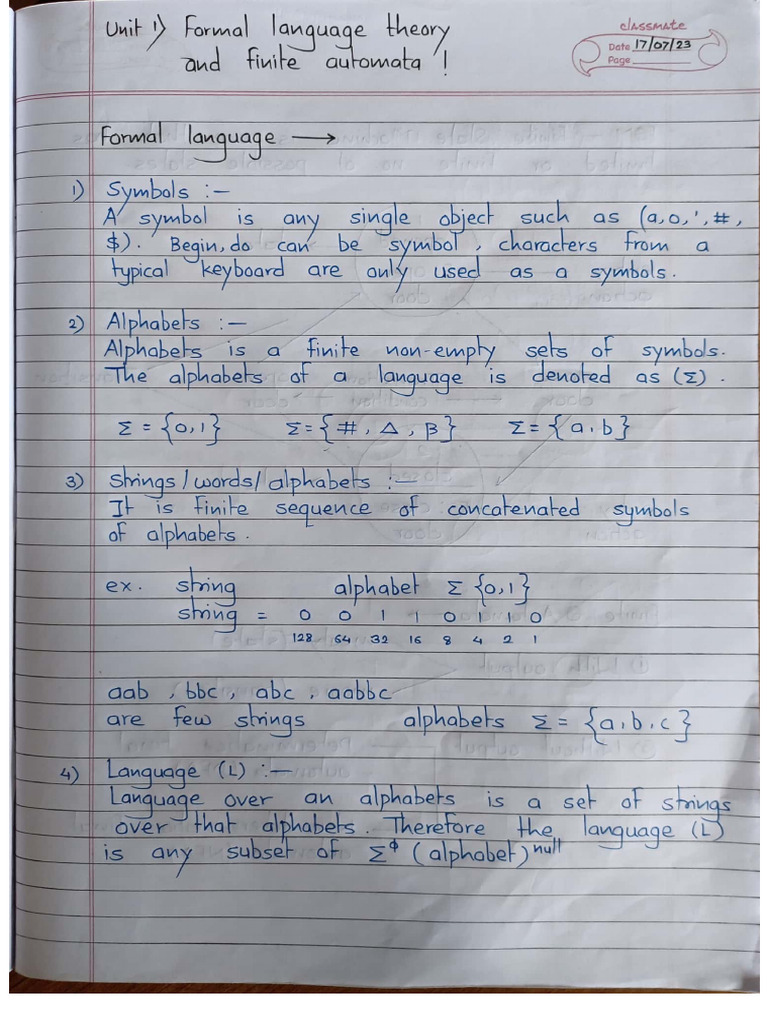 Unit 1) Formal language theory
and finite automata !
classmate
Date 17/07/23
Page
Formal language →
1) Symbols :-
A symbol is any single object such as (a, 0, ', #,
$). Begin, do can be symbol, characters from a
typical keyboard are only used as a symbols.
2) Alphabets :-
Alphabets is a finite non-empty sets of symbols.
The alphabets of a language is denoted as (Σ).
Σ = {0,1} Σ = {#, Δ, β} Σ = {a, b}
3) Strings/words/alphabets :-
It is finite sequence of concatenated symbols
of alphabets.
ex. string alphabet Σ {0,1}
string = 0 0 1 1 0 1 1 0
128 64 32 16 8 4 2 1
aab, bbc, abc, aabbc
are few strings alphabets Σ = {a, b, c}
4) Language (L) :-
Language over an alphabets is a set of strings
over that alphabets. Therefore the language (L)
is any subset of Σ^ϕ (alphabet)^null